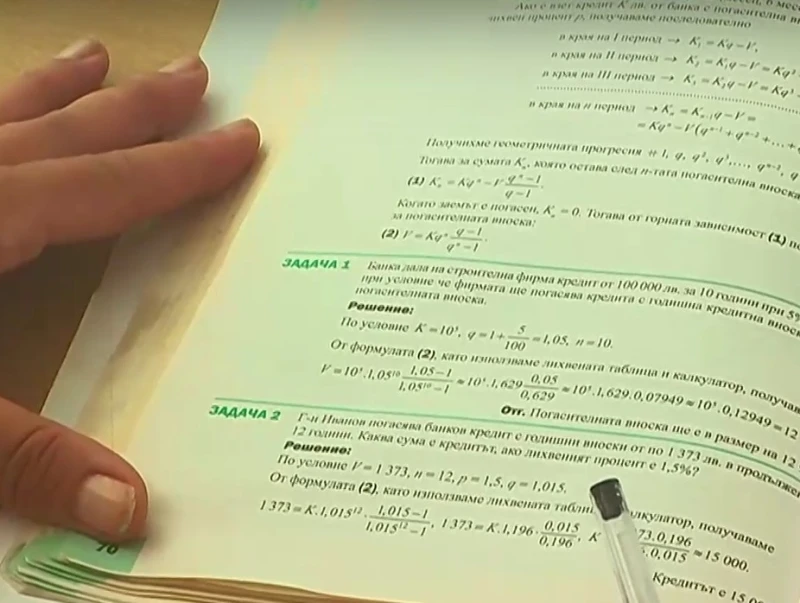 Ако е взет кредит K лв. от банка с погасителна
лихвен процент p, получаваме последователно
в края на I период → K₁ = Kq – V,
в края на II период → K₂ = K₁q – V = Kq²
в края на III период → K₃ = K₂q – V = Kq³
в края на n период → Kₙ = Kₙ₋₁q – V =
= Kqⁿ – V(qⁿ⁻¹ + qⁿ⁻² + ... +
Получихме геометричната прогресия ÷ 1, q, q², q³, ..., qⁿ⁻², q
Тогава за сумата Kₙ, която остава след n-тата погасителна вноска
(1) Kₙ = Kqⁿ – V (qⁿ – 1)/(q – 1).
Когато заемът е погасен, Kₙ = 0. Тогава от горната зависимост (1)
за погасителната вноска:
(2) V = Kqⁿ (q – 1)/(qⁿ – 1).
ЗАДАЧА 1 Банка дала на строителна фирма кредит от 100 000 лв. за 10 години при 5%
при условие че фирмата ще погасява кредита с годишна кредитна
погасителната вноска.
Решение:
По условие K = 10⁵, q = 1 + 5/100 = 1,05, n = 10.
От формулата (2), като използваме лихвената таблица и калкулатор,
V = 10⁵.1,05¹⁰ (1,05 – 1)/(1,05¹⁰ – 1) ≈ 10⁵.1,629 0,05/0,629 ≈ 10⁵.1,629.0,07949 ≈ 10⁵.0,12949 ≈ 12
Отг. Погасителната вноска ще е в размер на 12
ЗАДАЧА 2 Г-н Иванов погасява банков кредит с годишни вноски от по 1 373 лв. в
12 години. Каква сума е кредитът, ако лихвеният процент е 1,5%?
Решение:
По условие V = 1 373, n = 12, p = 1,5, q = 1,015.
От формулата (2), като използваме лихвената получаваме
1 373 = K.1,015¹². (1,015 – 1)/(1,015¹² – 1), 1 373 = K.1,196. 0,015/0,196, K 73.0,196/.0,015 ≈ 15 000.
Кредитът е 15
70